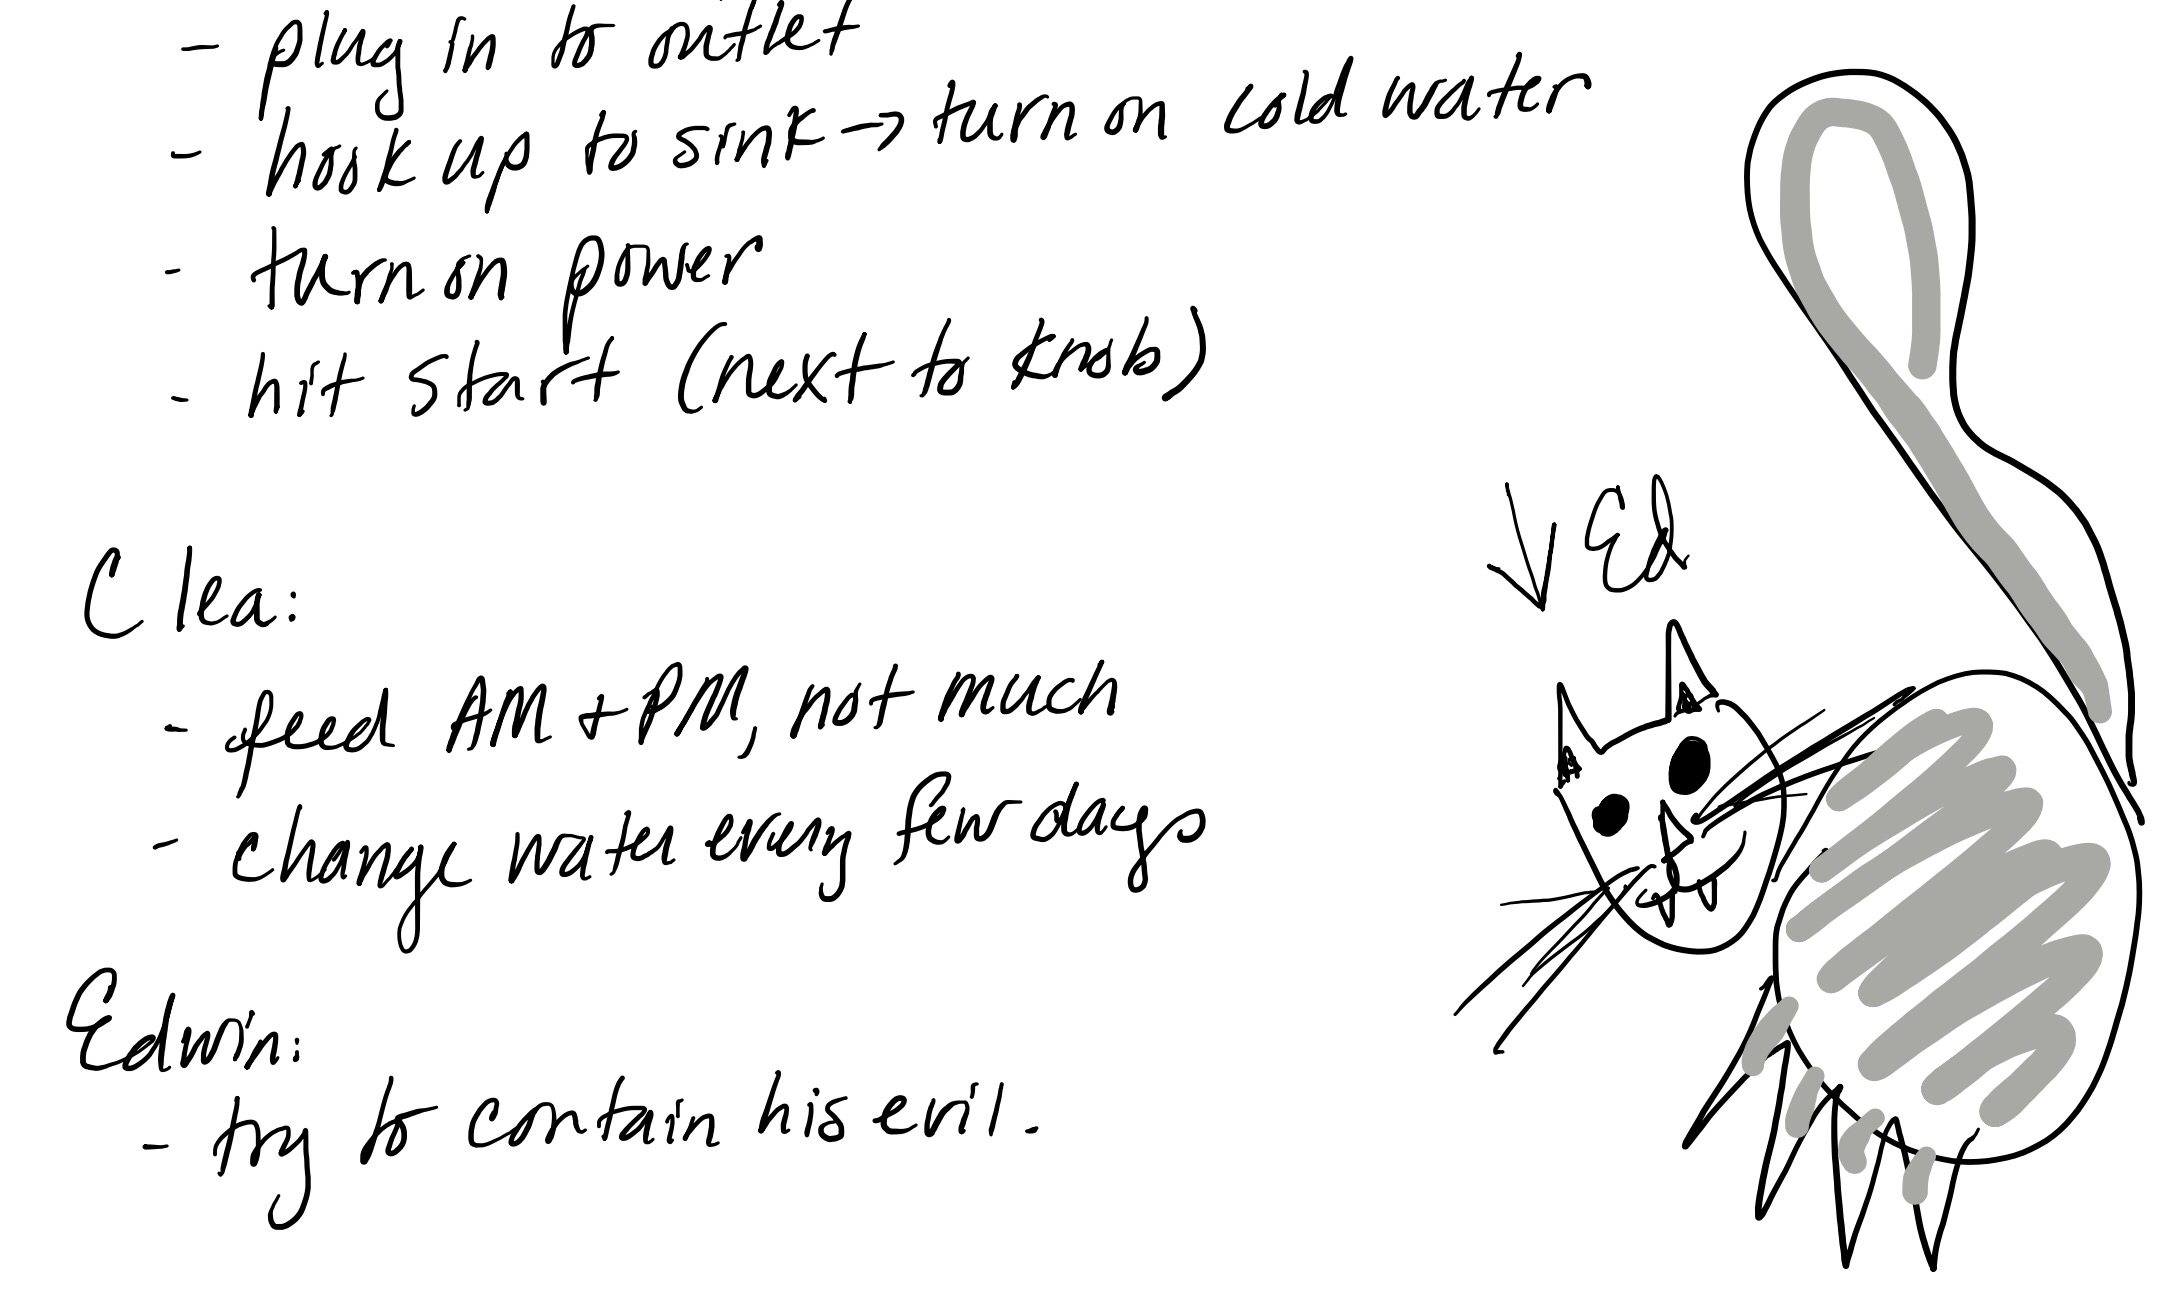 - plug in to outlet
- hook up to sink → turn on cold water
- turn on power
- hit start (next to knob)
Ed
Clea:
- feed AM + PM, not much
- change water every few days
Edwin:
- try to contain his evil.